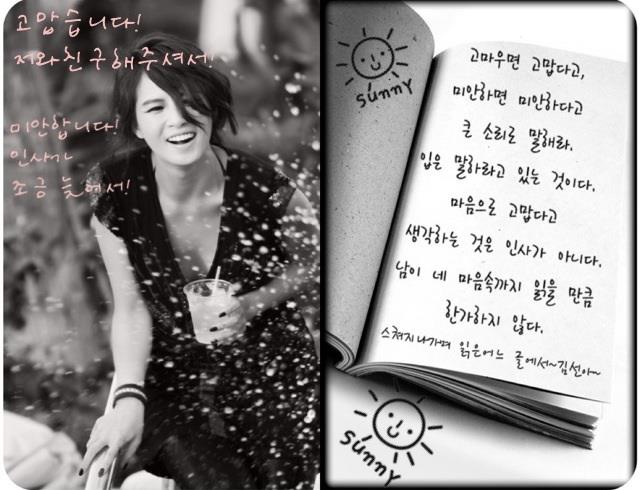 고맙습니다!
저와 친구해주셔서!
미안합니다!
인사가
조금 늦어서!
sunny
고마우면 고맙다고,
미안하면 미안하다고
큰 소리로 말해라.
입은 말하라고 있는 것이다.
마음으로 고맙다고
생각하는 것은 인사가 아니다.
남이 네 마음속까지 읽을 만큼
한가하지 않다.
스쳐지나가며 읽은어느 글에서~김선아~
sunny